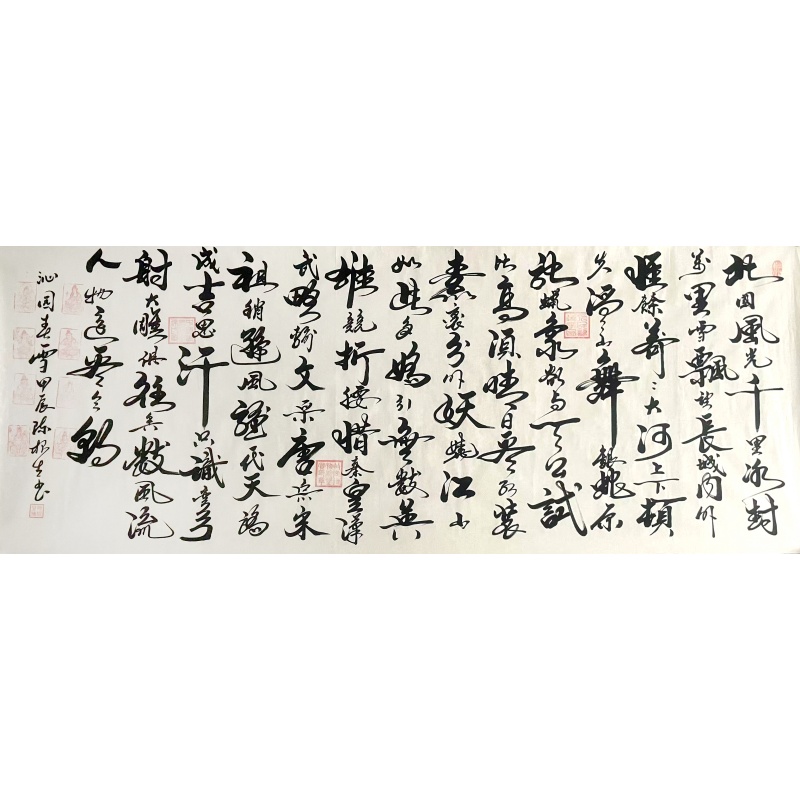 北国風光千里冰封
萬里雪飄望長城内外
惟餘莽〻大河上下頓
失滔〻山舞銀蛇原
馳蠟象欲与天公試
比高須晴日看红装
素裹分外妖娆江山
如此多嬌引無數英
雄競折腰惜秦皇漢
武略输文采唐宗宋
祖稍遜風騷代天驕
成吉思汗只識弯弓
射大雕俱往矣數風流
人物還看今朝
沁园春雪 甲辰 陈根生书